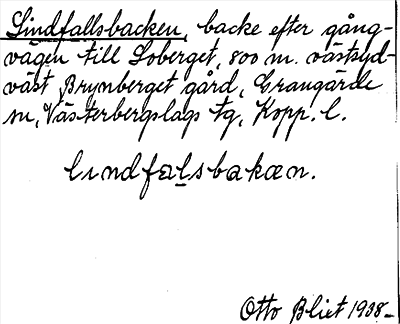 Lindfallsbacken, backe efter gång-
vägen till Loberget, 800 m. västsyd-
väst Brynberget gård, Grangärde
sn, Västerbergslags tg, Kopp. l.
lındfal̲sbakæn.
Otto Blixt 1938-